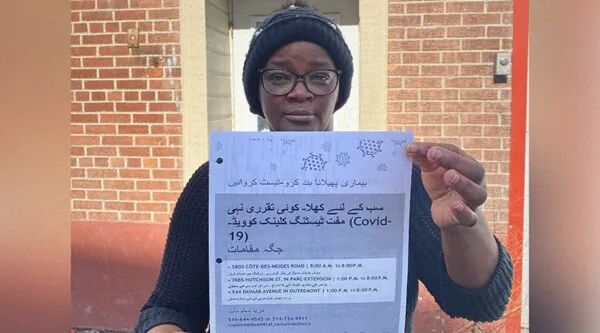 بیماری پھیلانا بند کرو-ٹیسٹ کروائیں
سب کے لئے کھلا۔ کوئی تقرری نہی
(Covid- مفت ٹیسٹنگ کلینک کوویڈ۔
19)
جگہ مقامات
• 5800 CÔTE-DES-NEIGES ROAD | 8:00 A.M. TO 8:00 P.M.
• 7085 HUTCHISON ST. IN PARC-EXTENSION | 1:00 P.M. TO 8:00 P.M.
• 544 DAVAAR AVENUE IN OUTREMONT | 1:00 P.M. TO 8:00 P.M.
مزید معلومات
514-644-4545 or 514-736-9911